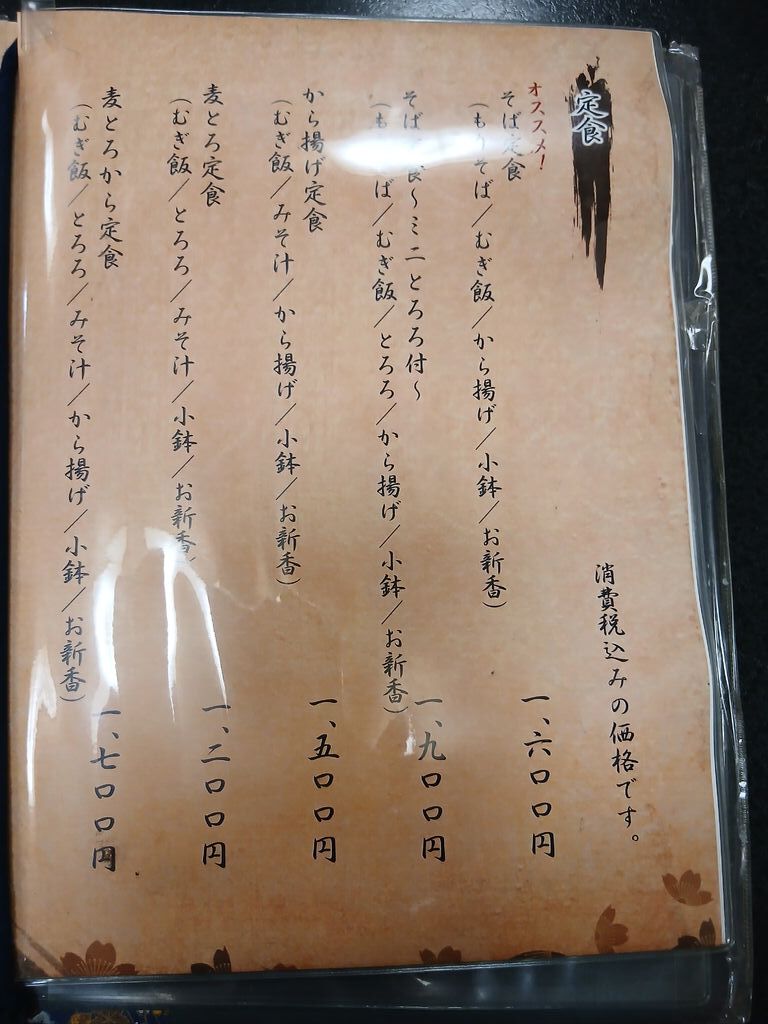 定食
消費税込みの価格です。
オススメ!
そば定食
(もりそば/むぎ飯/から揚げ/小鉢/お新香)
一、六〇〇円
そば 食〜ミニとろろ付〜
(も ば/むぎ飯/とろろ/から揚げ/小鉢/お新香)
一、九〇〇円
から揚げ定食
(むぎ飯/みそ汁/から揚げ/小鉢/お新香)
一、五〇〇円
麦とろ定食
(むぎ飯/とろろ/みそ汁/小鉢/お新香)
一、二〇〇円
麦とろから定食
(むぎ飯/とろろ/みそ汁/から揚げ/小鉢/お新香)
一、七〇〇円